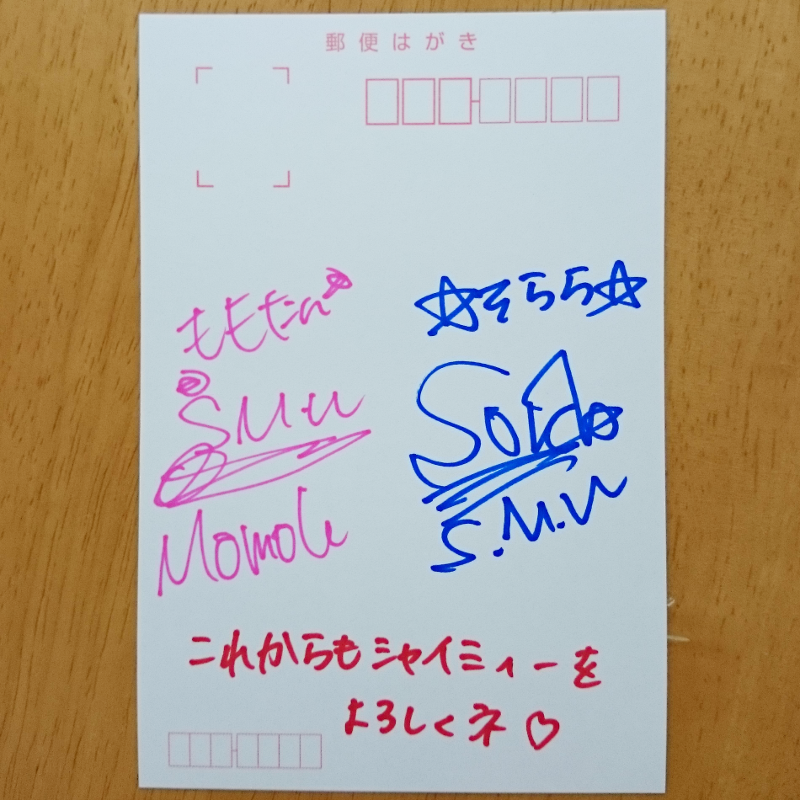 郵便はがき
ももたん
S.M.U
☆そらら☆
S.M.U
これからもシャイミィーを
よろしくネ♡